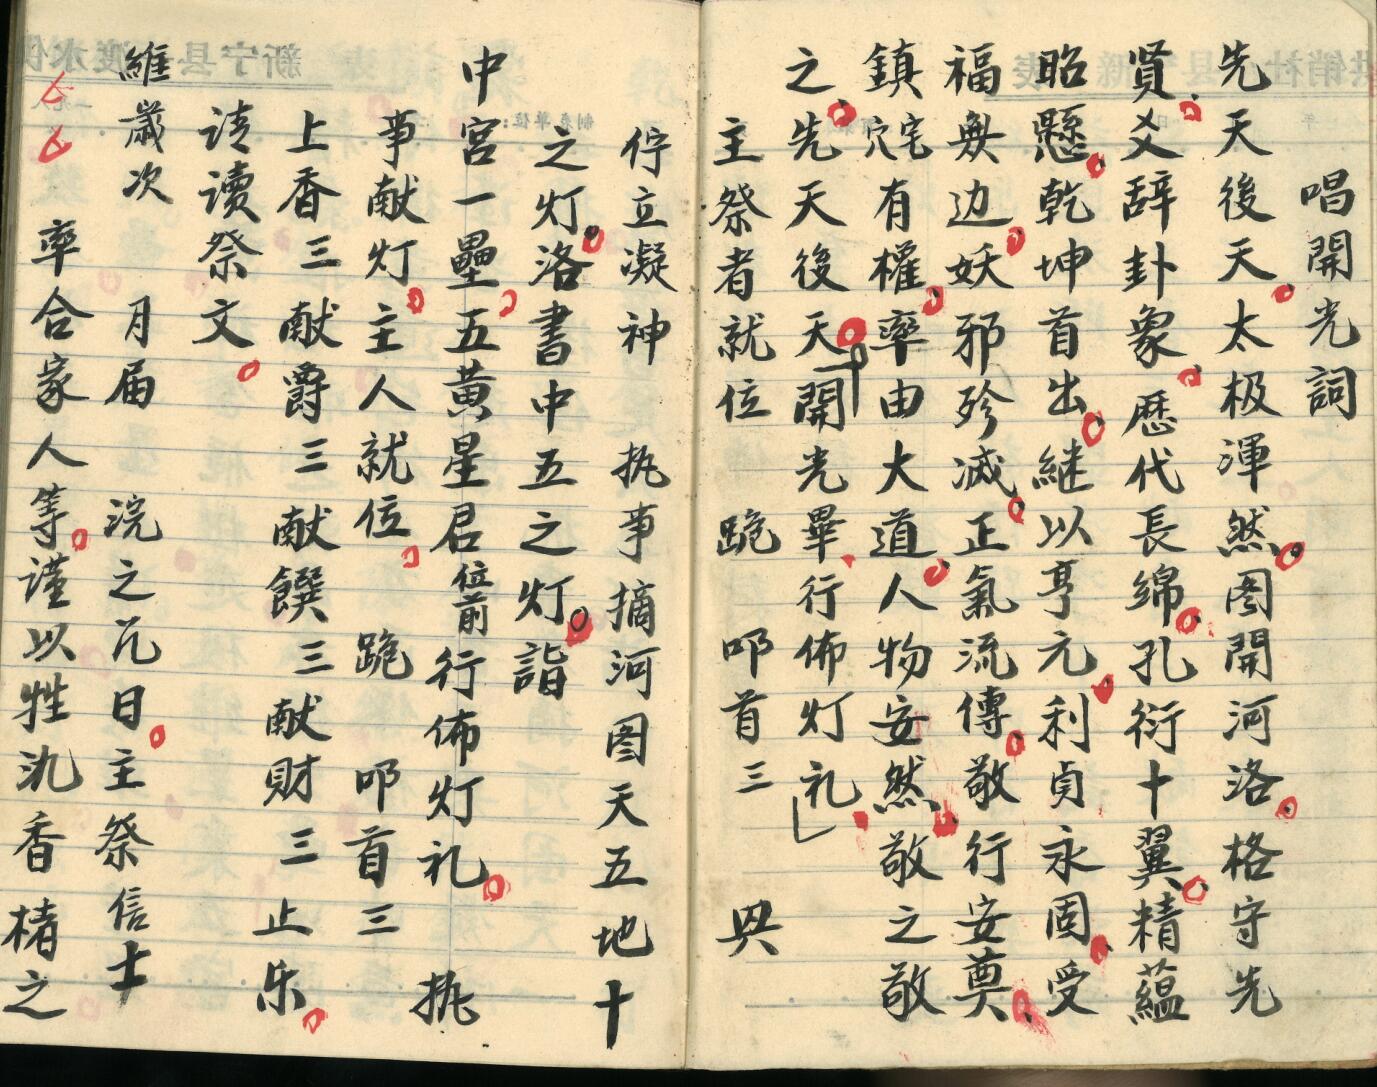 唱開光詞
先天後天太极渾然图開河洛格守先
贤爻辞卦象歷代長綿孔衍十翼精蘊
昭懸乾坤首出継以亨元利貞永固受
福無边妖邪殄滅正氣流傳敬行安奠
鎮宅穴有權率由大道人物安然敬之敬
之先天後天開光畢行佈灯礼
主祭者就位 跪 叩首三 興
佇立凝神 执事摘河图天五地十
之灯洛書中五之灯詣
中宮一壘五黄星君位前行佈灯礼 执
事献灯主人就位 跪 叩首三
上香三献爵三献饌三献財三止乐
请读祭文
維歲次 月届 浣之几日主祭信士
率合家人等謹以牲氿香楮之